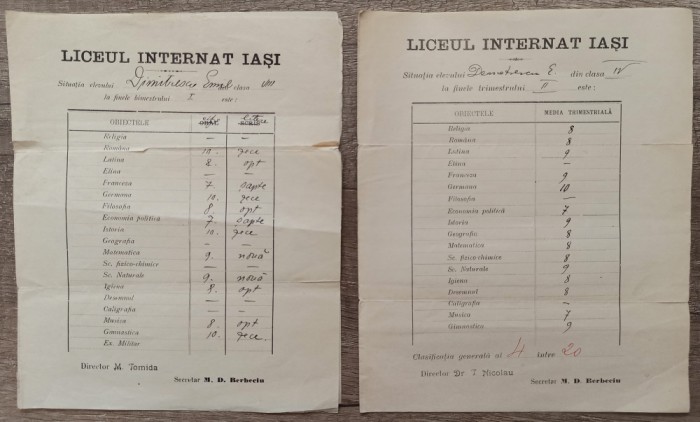 LICEUL INTERNAT IAȘI
Situația elevului Dimitrescu Emil clasa VIII
la finele trimestrului I este :
OBIECTELE
Religia — —
Româna 10. zece
Latina 8. opt
Elina — —
Franceza 7. șapte
Germana 10. zece
Filosofia 8 opt
Economia politică 7. șapte
Istoria 10. zece
Geografia — —
Matematica 9. nouă
Sc. fizico-chimice — —
Sc. Naturale 9. nouă
Igiena 8. opt
Desemnul — —
Caligrafia — —
Musica 8. opt
Gimnastica 10. zece.
Ex. Militar
Director M. Tomida
Secretar M. D. Berbeciu
LICEUL INTERNAT IAȘI
Situația elevului E. din clasa IV
la finele trimestrului II este :
OBIECTELE MEDIA TRIMESTRIALĂ
Religia 8
Româna 8
Latina 9
Elina —
Franceza 9
Germana 10
Filosofia —
Economia politică 7
Istoria 9
Geografia 8
Matematica 8
Sc. fizico-chimice 8
Sc. Naturale 9
Igiena 8
Desemnul 8
Caligrafia —
Musica 7
Gimnastica 9
Clasificația generală al 4 între 20
Director Dr I Nicolau
Secretar M. D. Berbeciu